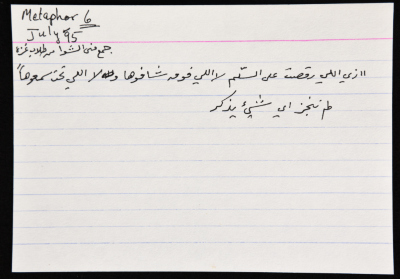 Metaphor 6
July 95
جمع منى الشوا من طلاب غزة
"زي اللي رقصت على السلم لا اللي فوق شافوها ولا اللي تحت سمعوها"
لم تنجز اي شئ يذكر